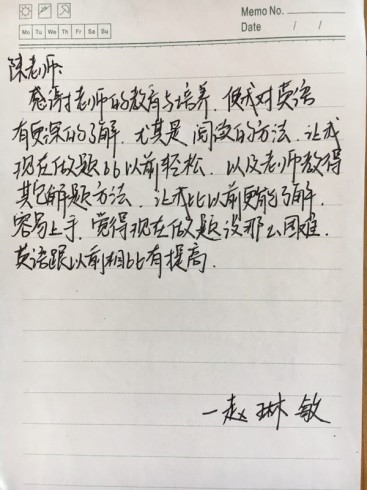 Memo No.
Mo Tu We Th Fr Sa Su
Date / /
陈老师:
感谢老师的教育与培养,使我对英语
有更深的了解,尤其是阅读的方法,让我
现在做题比以前轻松,以及老师教得
其它解题方法,让我比以前更能了解,
容易上手,觉得现在做题没那么困难,
英语跟以前相比有提高.
—赵琳敏